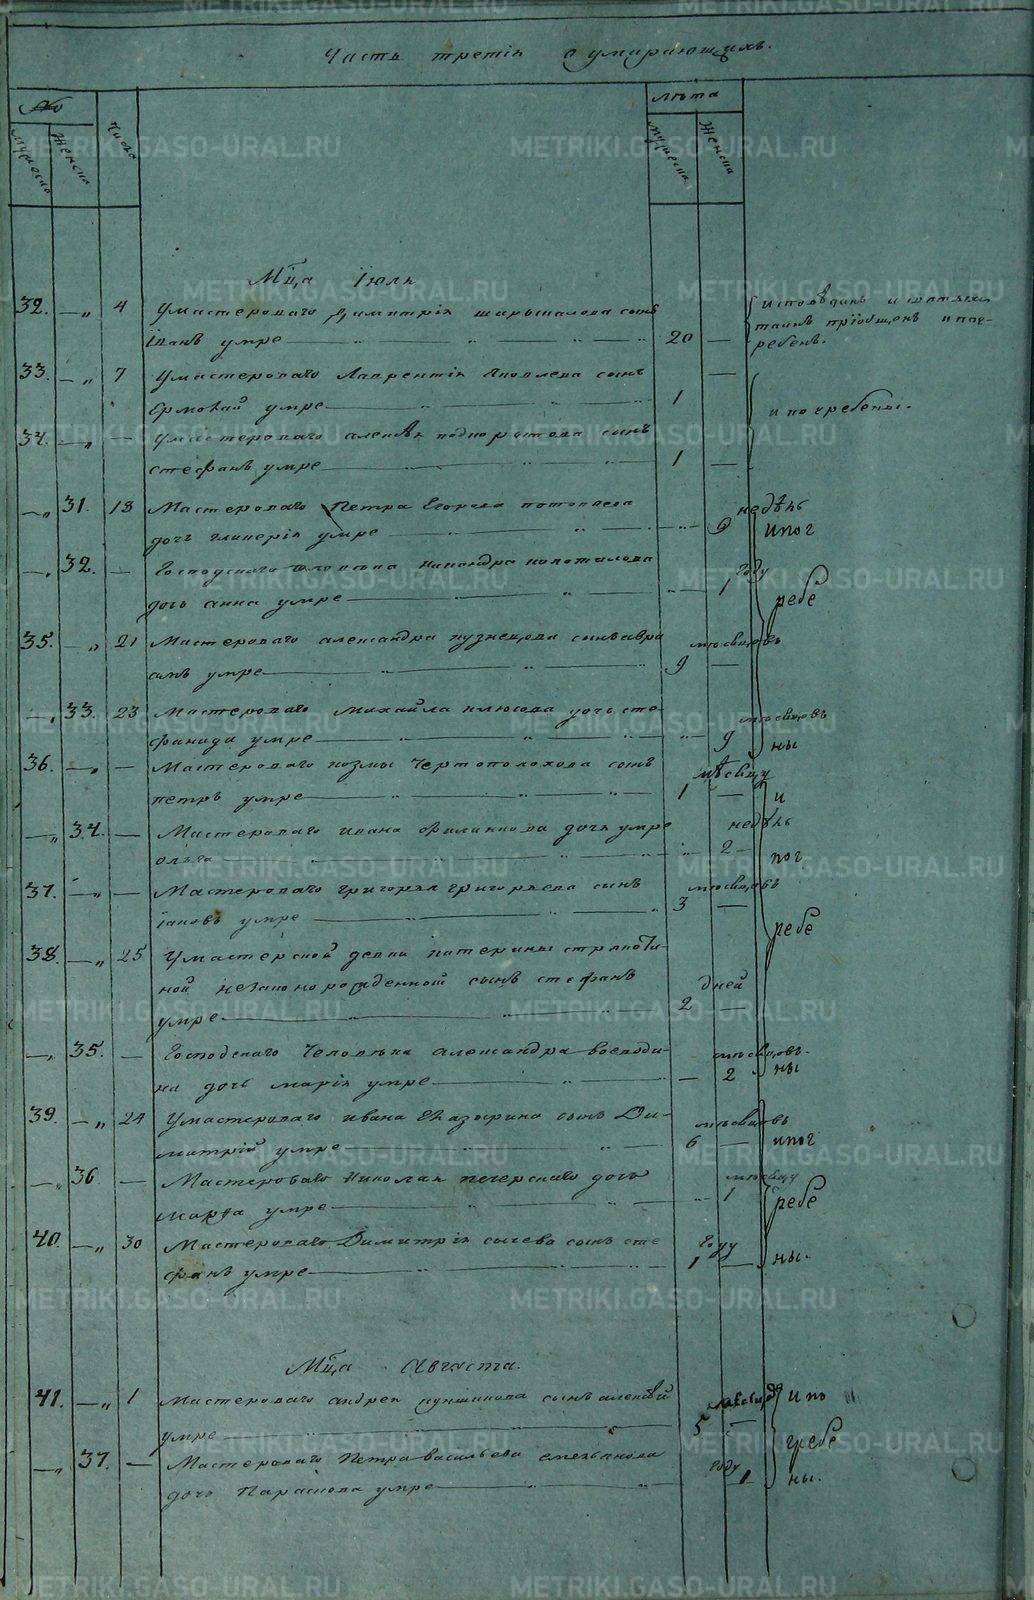 Часть третія о умирающихъ.
№ Лѣта
Мужеска Женска Число Мужеска Женска
Мц҃а Іюля
32. — „ 4 Умастероваго Димитрія сынъ исповѣданъ и святыхъ
Іванъ умре — „ — „ — „ 20 — таинъ пріобщенъ и пог-
ребенъ.
33. — „ 7 Умастероваго Лаврентія Яковлева сынъ —
Ермолай умре — „ — „ 1 и погребены.
34. — „ — Умастероваго алексѣя сынъ
стефанъ умре — „ — „ 1 —
— „ 31. 18 Мастероваго Петра Егорова недѣль
дочь гликерія умре — „ — „ 9 ипог
— „ 32. — Господского человѣка никандра году
дочь анна умре — „ — 1 ребе
35. — „ 21 Мастероваго александра кузнецова сынъ авра мѣсяцовъ
амъ умре — „ — „ 9 —
— „ 33. 23 Мастероваго Михайла клюсова дочь сте- мѣсяцовъ
фанида умре — „ — „ 9 ны
36. — „ — Мастероваго козмы Чертополохова сынъ мѣсяцу
петръ умре — „ — „ 1 — и
— „ 34. — Мастероваго ивана филиппова дочь умре недѣль
ольга — „ — „ 2 — пог
37. — „ — Мастероваго григорья григорьева сынъ мѣсяцовъ
іаковъ умре — „ — „ 3 — ребе
38. — „ 25 Умастерской девки катерины
ной незаконорожденной сынъ стефанъ дней
умре — „ — „ 2
— „ 35. — Господского Человѣка александра воеводи- мѣсяцовъ.
на дочь марія умре — „ — 2 ны
39. — „ 24 Умастероваго ивана сынъ Ди- мѣсяцовъ
митрій умре — „ — „ 6 — ипог
— „ 36 — Мастероваго Николая печерскаго дочь мѣсяцу
марѳа умре — „ — „ 1 ребе
40. — „ 30 Мастероваго Димитрія сычева сынъ сте году
фанъ умре — „ — „ 1 — ны.
Мц҃а Августа.
41. — „ 1 Мастероваго андрея сынъ алексѣй мѣсяцовъ и по
умре — „ — „ 5 — гребе
— „ 37. — Мастероваго Петра васильева емельянова году
дочь Параскова умре — „ — „ 1 ны.
METRIKI.GASO-URAL.RU